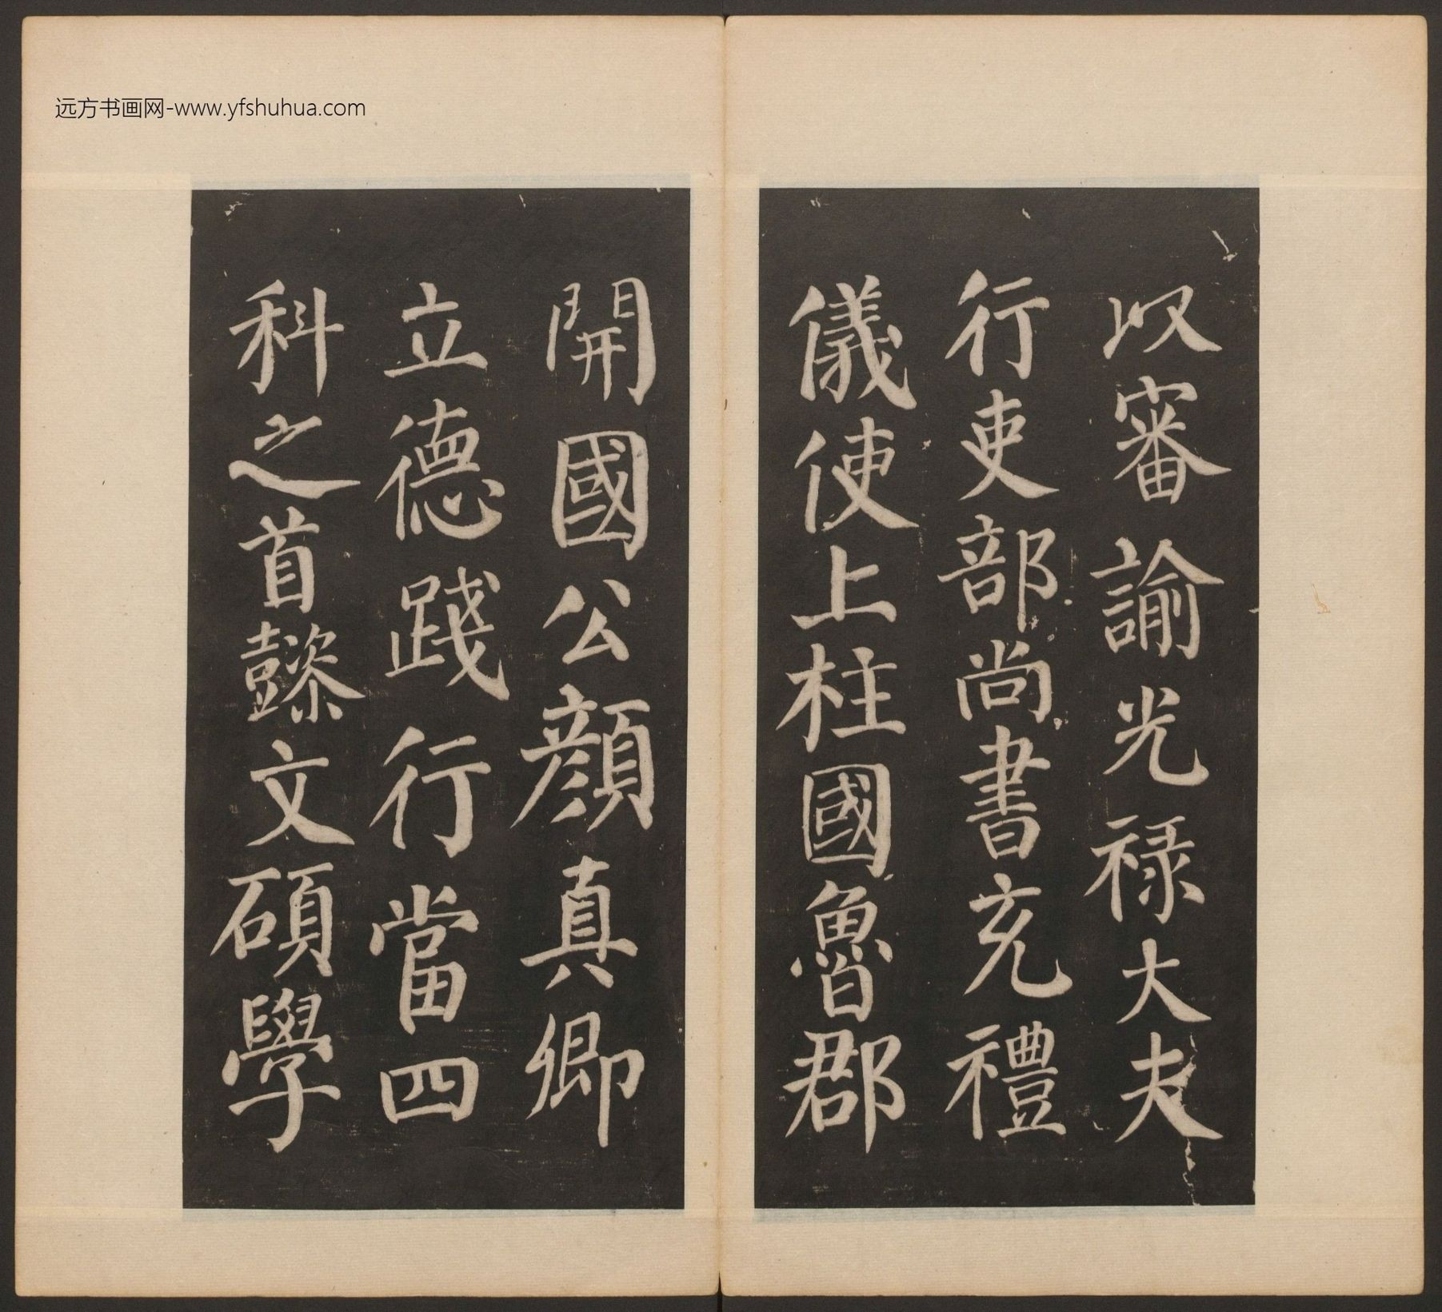 远方书画网-www.yfshuhua.com
以審諭光禄大夫
行吏部尚書充禮
儀使上柱國魯郡
開國公顔真卿
立德踐行當四
科之首懿文碩學